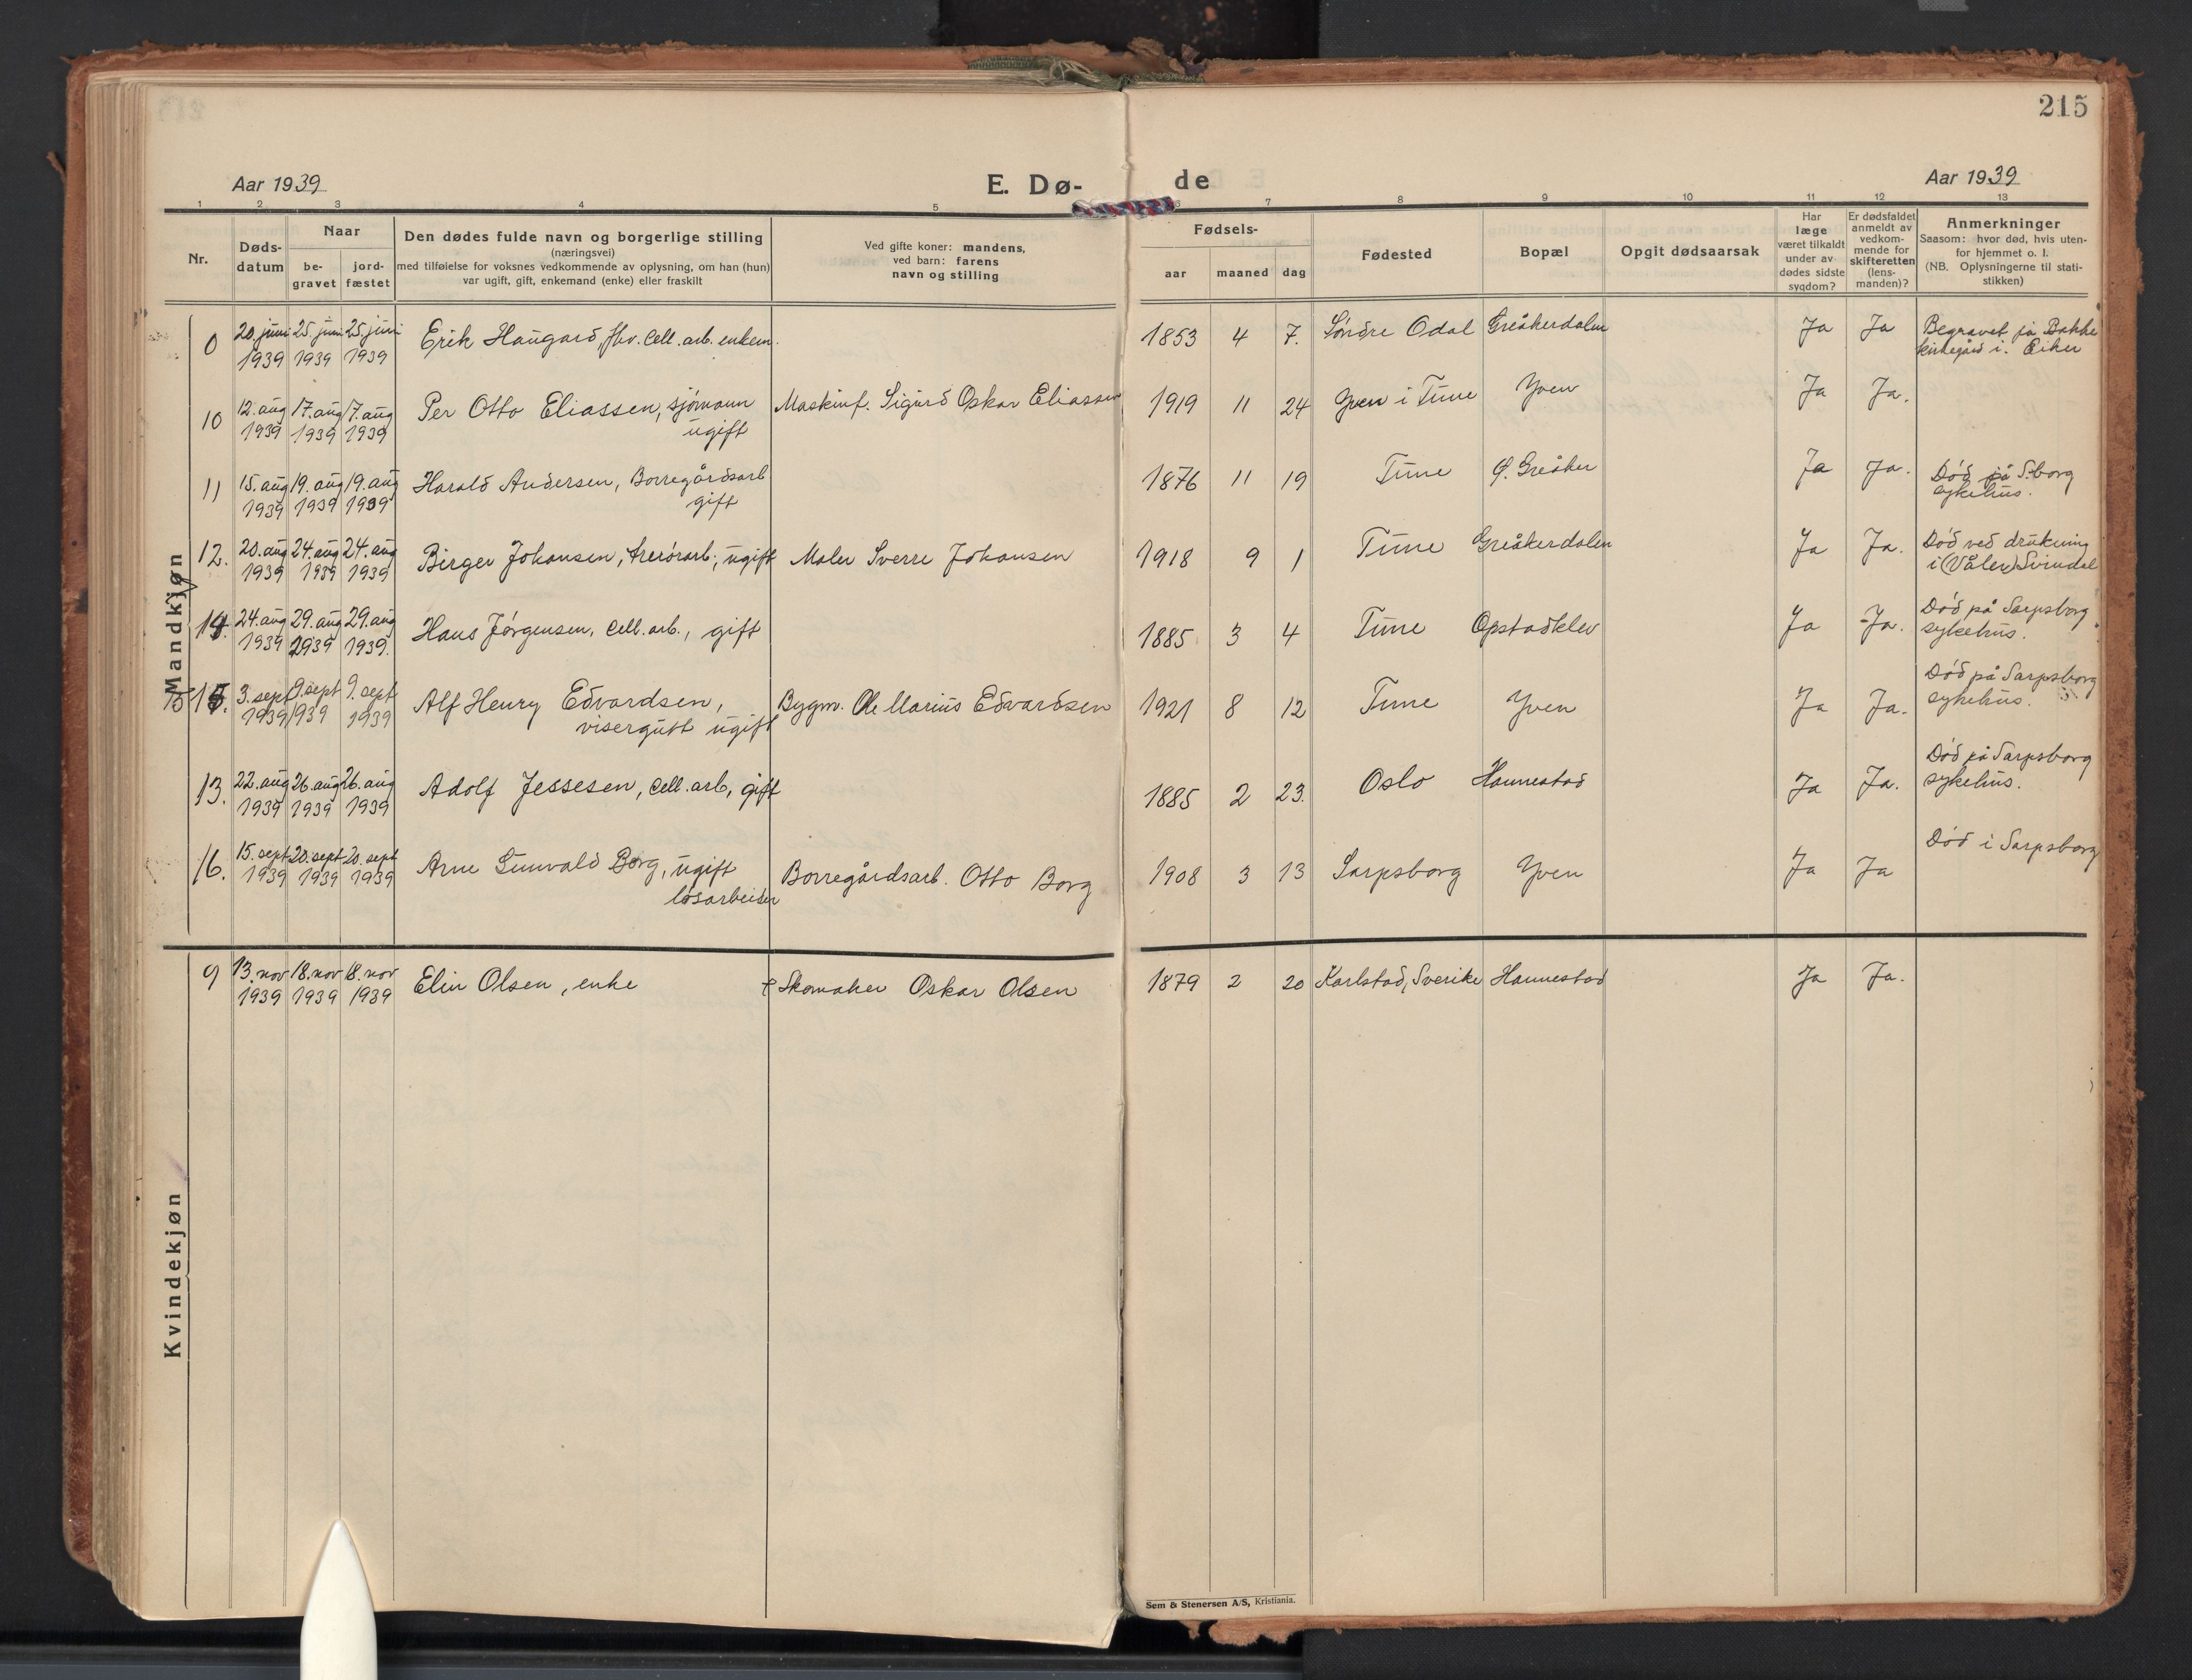 215
Aar 1939
E. Dø-
de
Aar 1939
1 2 3 4 5 6 7 8 9 10 11 12 13
Nr.
Døds-
datum
Naar
be-
gravet
jord-
fæstet
Den dødes fulde navn og borgerlige stilling
(næringsvei)
med tilføielse for voksnes vedkommende av oplysning, om han (hun)
var ugift, gift, enkemand (enke) eller fraskilt
Ved gifte koner: mandens,
ved barn: farens
navn og stilling
Fødsels-
aar maaned dag
Fødested
Bopæl
Opgit dødsaarsak
Har
læge
været tilkaldt
under av-
dødes sidste
sygdom?
Er dødsfaldet
anmeldt av
vedkom-
mende for
skifteretten
(lens-
manden)?
Anmerkninger
Saasom: hvor død, hvis uten-
for hjemmet o. l.
(NB. Oplysningerne til stati-
stikken)
Mandkjøn
0 20. juni 25. juni 25. juni Erik Haugard, fhv. cell. arb. enkem. 1853 4 7. Søndre Odal Greåkerdalen Ja Ja Begravet på Bakke
1939 1939 1939 kirkegård i. Eiker
10 12. aug 17. aug 17. aug Per Otto Eliassen, sjømann Maskinf. Sigurd Oskar Eliassen 1919 11 24 Yven i Tune Yven Ja Ja.
1939 1939 1939 ugift
11 15. aug 19. aug 19. aug Harald Andersen, Borregårdsarb 1876 11 19 Tune Ø. Greåker Ja Ja. Død på S.borg
1939 1939 1939 gift sykehus.
12. 20. aug 24. aug 24. aug Birger Johansen, trerørarb., ugift Maler Sverre Johansen 1918 9 1 Tune Greåkerdalen Ja Ja. Død ved drukning
1939 1939 1939 i (Våler) Svindal
14. 24. aug 29. aug 29. aug Hans Jørgensen, cell. arb., gift 1885 3 4 Tune Opstadklev Ja Ja. Død på Sarpsborg
1939 1939 1939. sykehus.
15 3. sept 9. sept 9. sept Alf Henry Edvardsen, Bygm. Ole Marius Edvardsen 1921 8 12 Tune Yven Ja Ja. Død på Sarpsborg
1939 1939 1939 visergutt ugift sykehus.
13. 22. aug 26. aug 26. aug Adolf Jessesen, cell. arb, gift 1885 2 23. Oslo Hannestad Ja Ja. Død på Sarpsborg
1939 1939 1939 sykehus.
16. 15. sept 20. sept 20. sept Arne Sunvald Borg, ugift Borregårdsarb. Otto Borg 1908 3 13 Sarpsborg Yven Ja Ja Død i Sarpsborg
1939 1939 1939 løsarbeider
Kvindekjøn
9 13. nov 18. nov 18. nov Elin Olsen, enke † Skomaker Oskar Olsen 1879 2 20 Karlstad, Sverike Hannestad Ja Ja.
1939 1939 1939
Sem & Stenersen A/S, Kristiania.